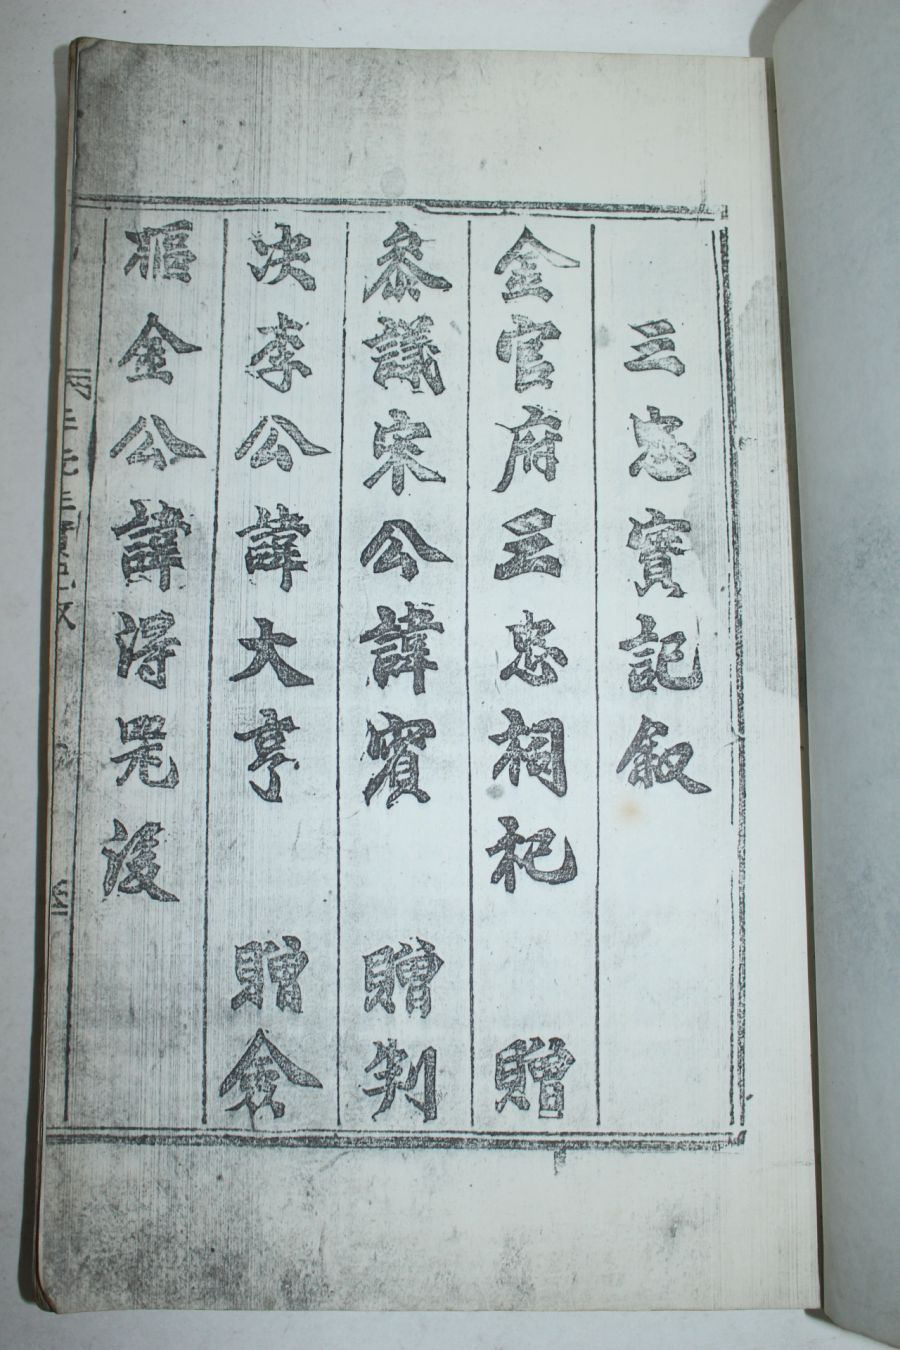 三忠實記叙
金官府三忠祠祀 贈
叅議宋公諱賓 贈判
決李公諱大亨 贈僉
樞金公諱得器後